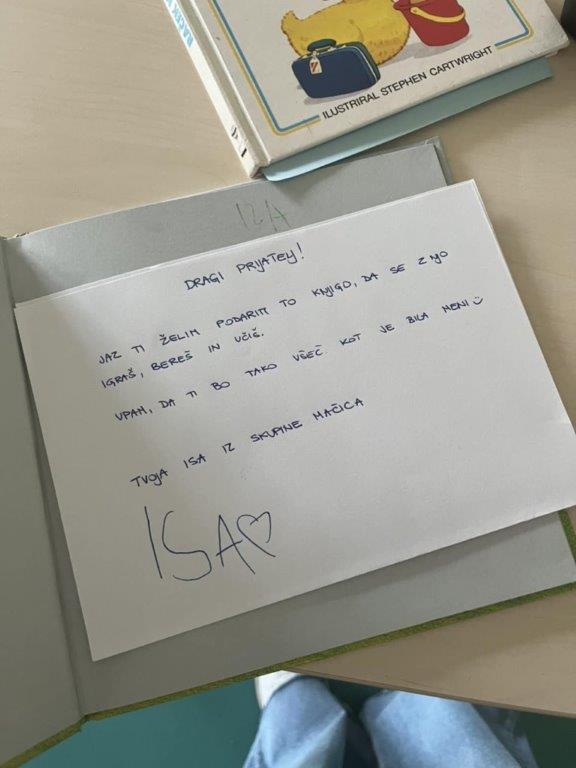 ILUSTRIRAL STEPHEN CARTWRIGHT
IZA
DRAGI PRIJATELJ!
JAZ TI ŽELIM PODARITI TO KNJIGO, DA SE Z NJO
IGRAŠ, BEREŠ IN UČIŠ.
UPAM, DA TI BO TAKO VŠEČ KOT JE BILA MENI
TVOJA ISA IZ SKUPINE MAČICA
ISA